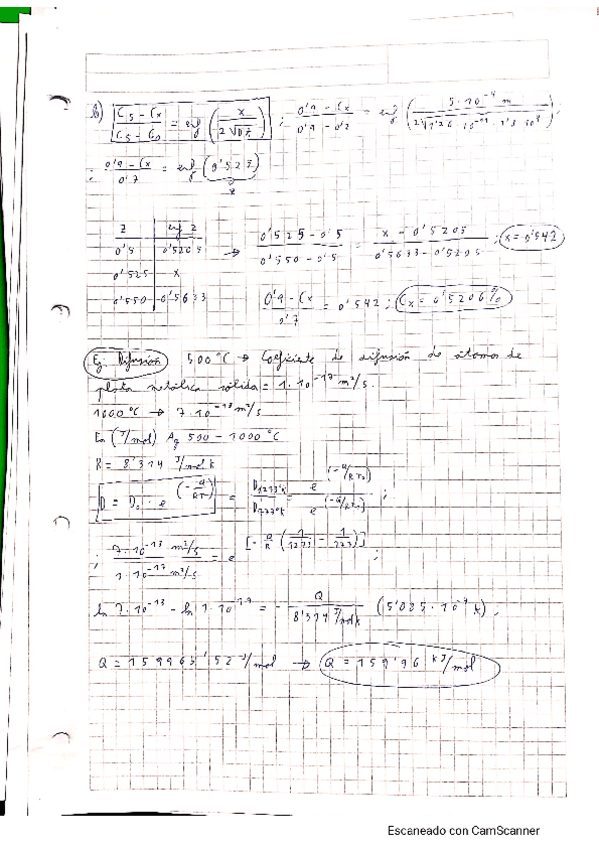 b) (C5 - Cx)/(C5 - C0) = erf (x/(2√Dt)) ; (0'9 - Cx)/(0'9 - 0'2) = erf
; (0'9 - Cx)/0'7 = erf (0'523)
z | erf z
0'5 | 0'5205
0'525 | x
0'550 | 0'5633
→ (0'525 - 0'5)/(0'550 - 0'5) = (x - 0'5205)/(0'5633 - 0'5205) ; x = 0'542
(0'9 - Cx)/0'7 = 0'542 ; Cx = 0'5206 %
Ej. Difusión 500°C → Coeficiente de difusión de átomos de
plata metálica sólida = 1·10⁻¹⁷ m²/s.
1000°C → 7·10⁻¹³ m²/s
Ea (J/mol) Ag 500 - 1000°C
R = 8'314 J/mol k
D = D₀ · e
; (7·10⁻¹³ m²/s)/(1·10⁻¹⁷ m²/s) = e [- Q/R (1/1273 - 1/773)] ;
ln 7·10⁻¹³ - ln 1·10⁻¹⁷ = - Q/(8'314 J/molk) (5'085·10⁻⁴ k) ;
Q = 159963'52 J/mol → Q = 159'96 kJ/mol
Escaneado con CamScanner